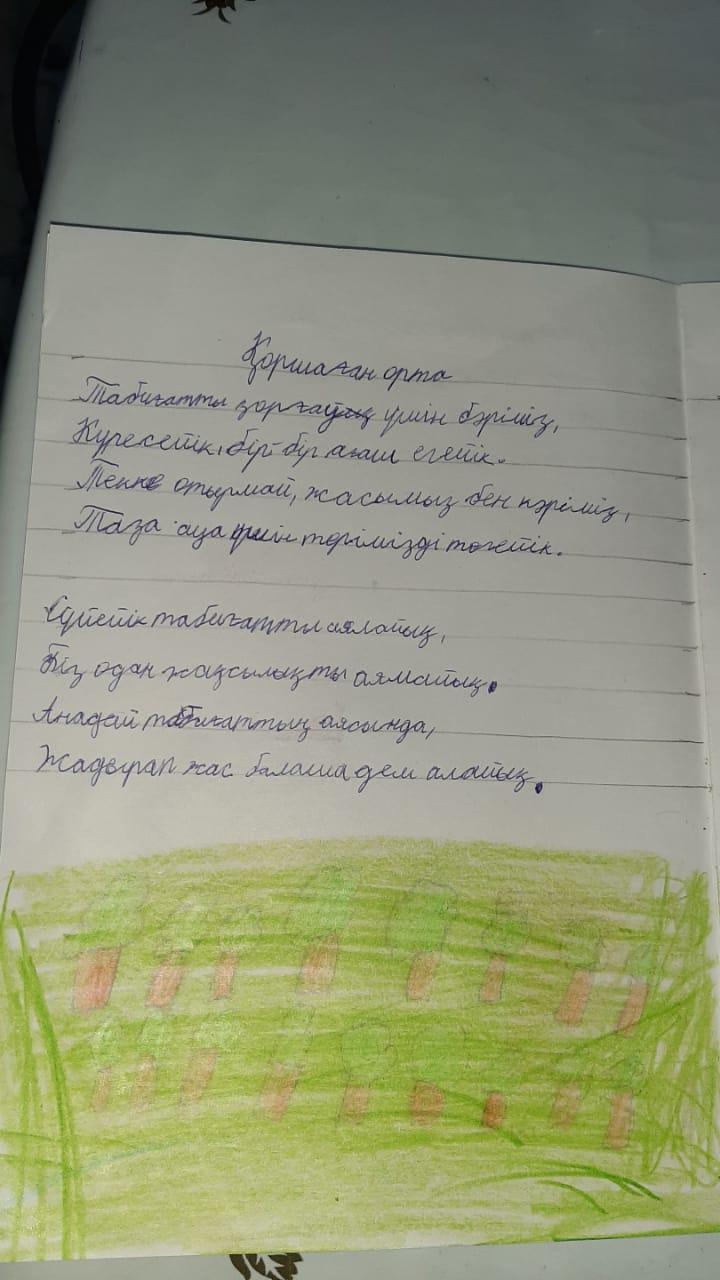 Қоршаған орта
Табиғатты қорғау үшін бәріміз,
Күресетік, бір-бір ағаш егетік.
Текке отырмай, жасымыз бен кәріміз,
Таза ауа үшін терімізді төгетік.
Сүйетік табиғатты аялайық,
Біз одан жақсылықты аямайық.
Анадай табиғаттың аясында,
Жадырап жас балаша дем алайық.